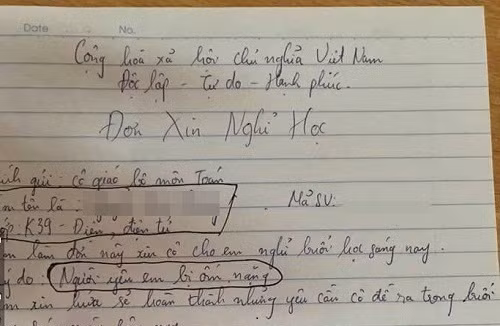 Date No.
Cộng hoà xả hội chủ nghĩa Việt Nam
Độc lập - tự do - Hạnh phúc.
Đơn Xin Nghỉ Học
ính gửi: cô giáo bộ môn Toán
m tên là: Mã SV:
ớp K39 - Điện, điện tử
m làm đơn này xin cô cho em nghỉ buổi học sáng nay.
ý do: Người yêu em bị ốm nặng
m xin hứa sẽ hoàn thành những yêu cầu cô đề ra trong buổi